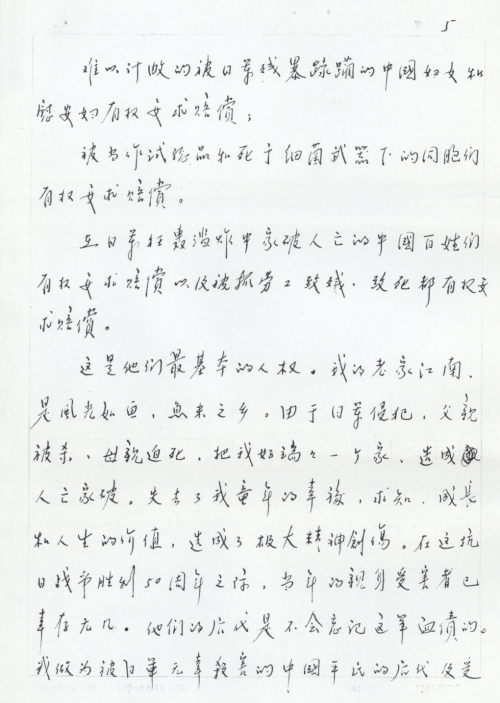 5
难以计数的被日军残暴蹂躏的中国妇女和
慰安妇有权要求赔偿；
被当作试验品和死于细菌武器下的同胞们
有权要求赔偿。
在日军狂轰滥炸中家破人亡的中国百姓们
有权要求赔偿以及被抓劳工致残、致死都有权要
求赔偿。
这是他们最基本的人权。我的老家江南、
是风光如画，鱼米之乡。由于日军侵犯，父亲
被杀、母亲迫死，把我好端々一个家、造成
人亡家破。失去了我童年的幸福，求知、成长
和人生的价值，造成了极大精神创伤。在这抗
日战争胜利50周年之际，当年的亲身受害者已
幸存无几。他们的后代是不会忘记这笔血债的。
我做为被日军无辜杀害的中国平民的后代及受